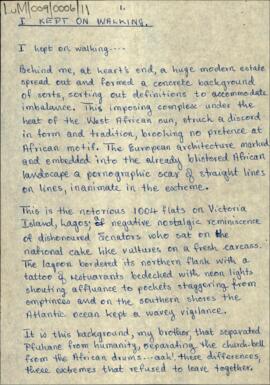 LUM/009/0006/11
1.
I KEPT ON WALKING.
I kept on walking....
Behind me, at heart's end, a huge modern estate
spread out and formed a concrete background
of sorts, sorting out definitions to accommodate
imbalance. This imposing complex under the
heat of the West African sun, struck a discord
in form and tradition, brooking no pretence at
African motif. The European architecture marked
and embedded into the already blistered African
landscape a pornographic scar of straight lines
on lines, inanimate in the extreme.
This is the notorious 1004 flats on Victoria
Island, Lagos; of negative nostalgic reminiscence
of dishonoured Senators who sat on the
national cake like vultures on a fresh carcass.
The lagoon bordered its northern flank with a
tattoo of restuarants bedecked with neon lights
shouting affluance to pockets staggering from
emptiness and on the southern shores the
Atlantic ocean kept a wavey vigilance.
It is this background, my brother, that separated
Pfuhane from humanity, separating the church-bell
from the African drums...aah! these differences,
these extremes that refused to leave together.